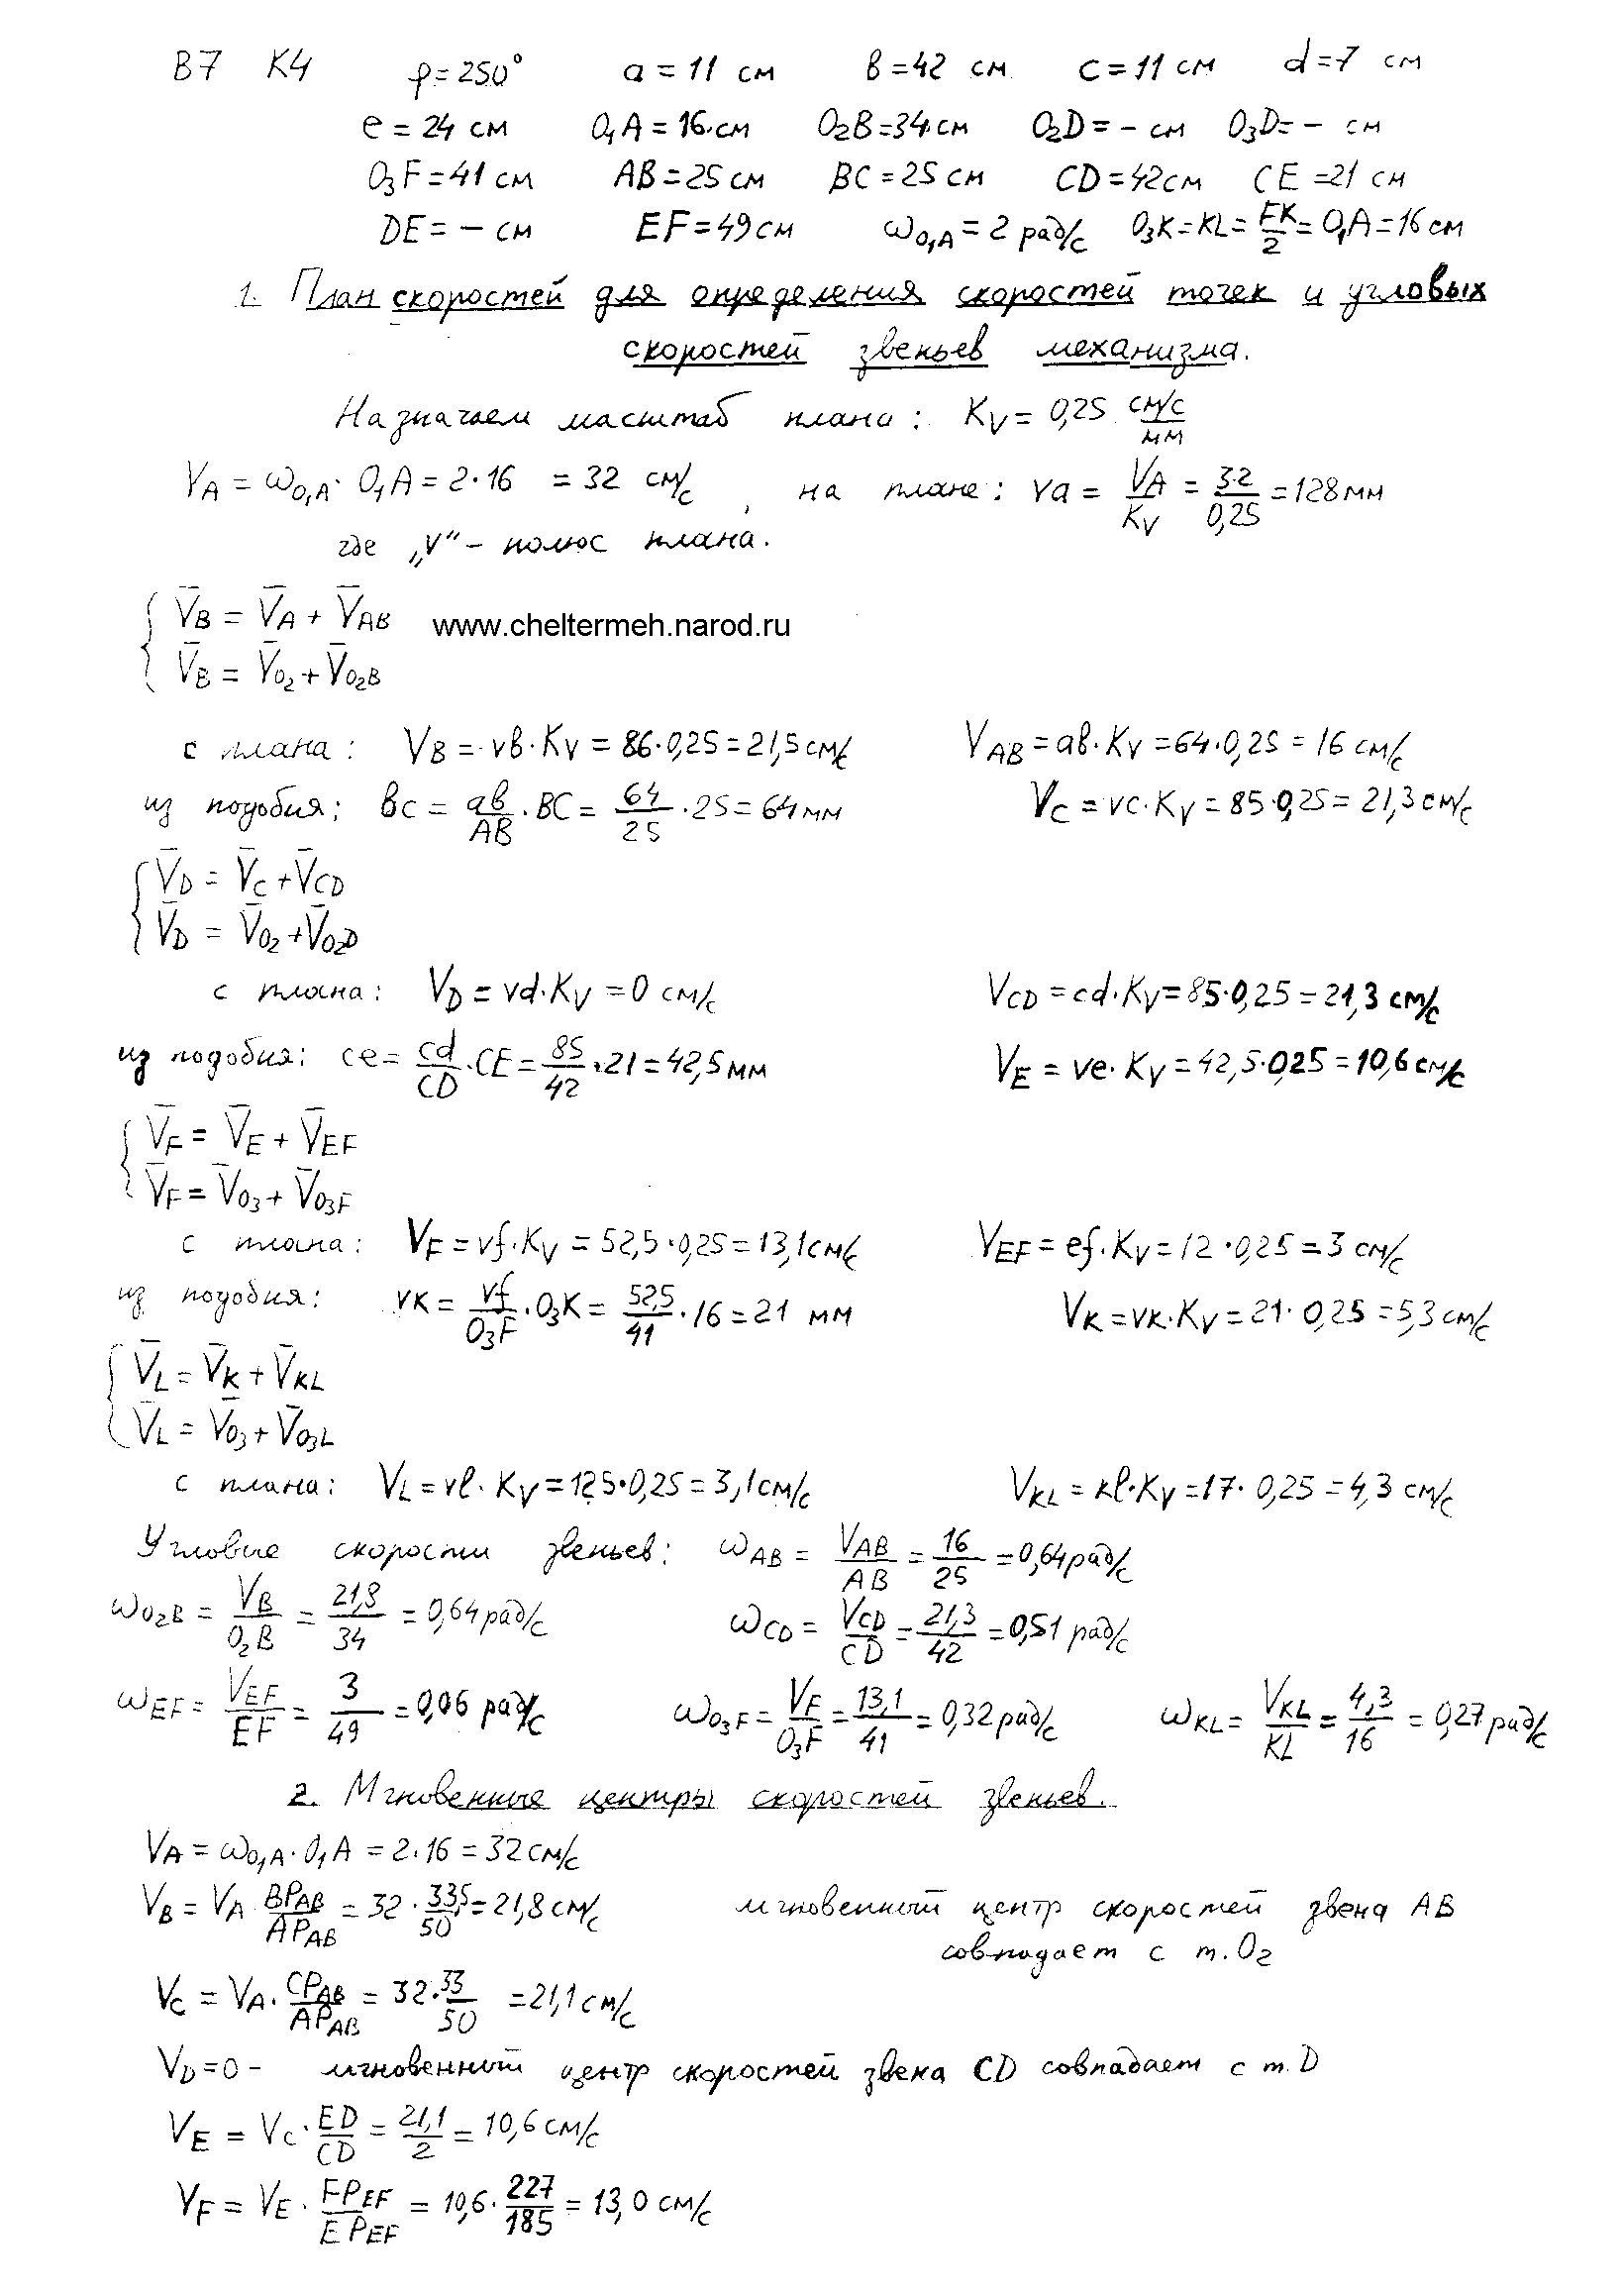 В7 К4 φ=250° a = 11 см в =42 см c = 11 см d =7 см
e = 24 см O₁A = 16 см O₂B=34 см O₂D = – см O₃D= – см
O₃F=41 см AB=25 см BC=25 см CD=42см CE =21 см
DE= – см EF=49 см ω_O₁A = 2 рад/с O₃K=KL= FK/2 = O₁A=16 см
1. План скоростей для определения скоростей точек и угловых
скоростей звеньев механизма.
Назначаем масштаб плана: K_V = 0,25 (см/с)/мм
V_A = ω_O₁A · O₁A = 2·16 = 32 см/с, на плане: va = V_A/K_V = 32/0,25 = 128мм
где „v“ – полюс плана.
{ V̄_B = V̄_A + V̄_AB www.cheltermeh.narod.ru
V̄_B = V̄_O₂ + V̄_O₂B
с плана: V_B = vв·K_V = 86·0,25 = 21,5 см/с V_AB = aв·K_V = 64·0,25 = 16 см/с
из подобия; вc = aв/AB · BC = 64/25 · 25 = 64 мм V_C = vc·K_V = 85·0,25 = 21,3 см/с
{ V̄_D = V̄_C + V̄_CD
V̄_D = V̄_O₂ + V̄_O₂D
с плана: V_D = vd·K_V = 0 см/с V_CD = cd·K_V = 85·0,25 = 21,3 см/с
из подобия: ce = cd/CD · CE = 85/42 · 21 = 42,5 мм V_E = ve·K_V = 42,5·0,25 = 10,6 см/с
{ V̄_F = V̄_E + V̄_EF
V̄_F = V̄_O₃ + V̄_O₃F
с плана: V_F = vf·K_V = 52,5·0,25 = 13,1 см/с V_EF = ef·K_V = 12·0,25 = 3 см/с
из подобия: vк = vf/O₃F · O₃K = 52,5/41 · 16 = 21 мм V_K = vк·K_V = 21·0,25 = 5,3 см/с
{ V̄_L = V̄_K + V̄_KL
V̄_L = V̄_O₃ + V̄_O₃L
с плана: V_L = vl·K_V = 12,5·0,25 = 3,1 см/с V_KL = кl·K_V = 17·0,25 = 4,3 см/с
Угловые скорости звеньев: ω_AB = V_AB/AB = 16/25 = 0,64 рад/с
ω_O₂B = V_B/O₂B = 21,8/34 = 0,64 рад/с ω_CD = V_CD/CD = 21,3/42 = 0,51 рад/с
ω_EF = V_EF/EF = 3/49 = 0,06 рад/с ω_O₃F = V_F/O₃F = 13,1/41 = 0,32 рад/с ω_KL = V_KL/KL = 4,3/16 = 0,27 рад/с
2. Мгновенные центры скоростей звеньев.
V_A = ω_O₁A · O₁A = 2·16 = 32 см/с
V_B = V_A · BP_AB/AP_AB = 32 · 33,5/50 = 21,8 см/с мгновенный центр скоростей звена AB
совпадает с т. O₂
V_C = V_A · CP_AB/AP_AB = 32 · 33/50 = 21,1 см/с
V_D = 0 – мгновенный центр скоростей звена CD совпадает с т. D
V_E = V_C · ED/CD = 21,1/2 = 10,6 см/с
V_F = V_E · FP_EF/EP_EF = 10,6 · 227/185 = 13,0 см/с